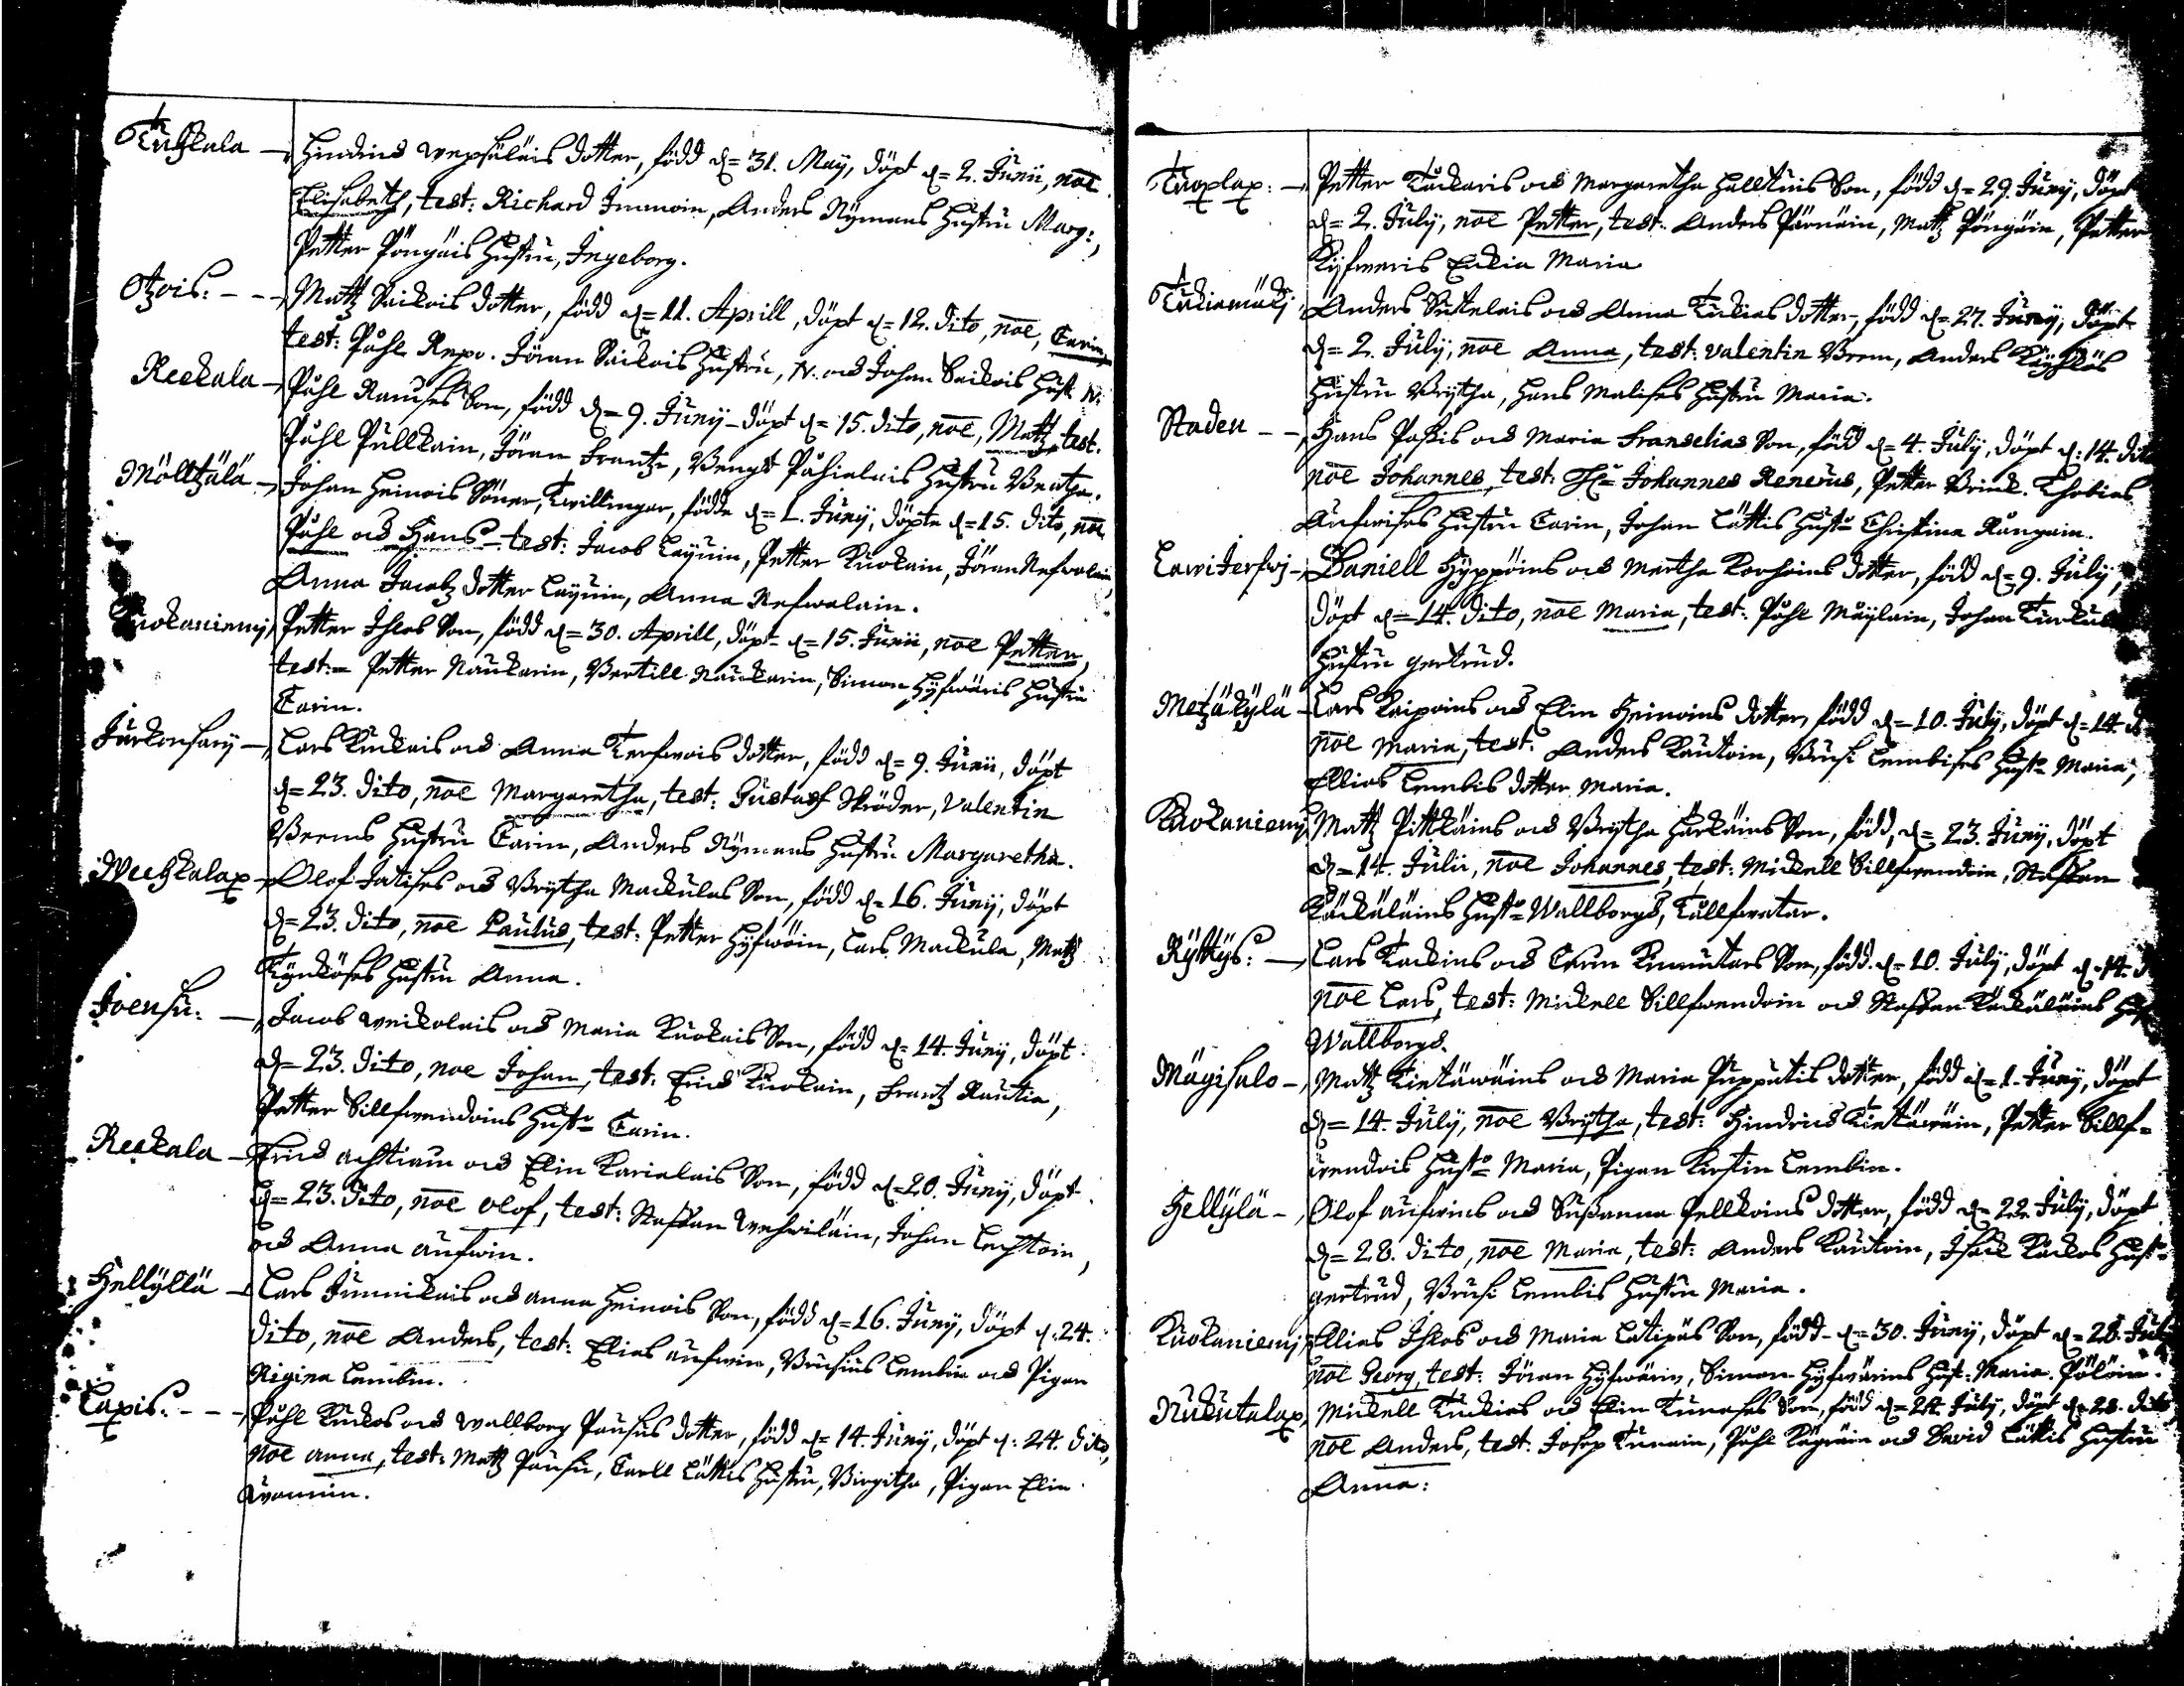 Tuhkala — Hindrics Wepsäläis dotter, född d= 31. Maÿ, döpt d= 2. Junii, noe
Elisabeth, test: Richard Immoin, Anders Nÿmans Hustru Marg:,
Petter Pöngäis Hustru, Ingeborg.
Otzois: - - Mattz Saickois dotter, född d= 11. Aprill, döpt d= 12. dito, noe, Carin,
test: Påhl Repo. Jöran Saickois Hustru, N. och Johan Saickois Hust N:
Reckala — Påhl Rauses Son, född d= 9. Junÿ - döpt d= 15. dito, noe, Mattz, test.
Påhl Pullkain, Jöran Frantz, Bengt Påhialais Hustru Beatha.
Möltzälä — Johan Heinois Söner, Twillingar, födde d= 1. Junÿ, döpte d= 15. dito, noe
Påhl och Hans - test: Jacob Laÿnin, Petter Kuokain, Jöran Refwalain,
Anna Jacobz dotter Laÿnin, Anna Refwalain.
Kuokaniemÿ, Petter Ihlos Son, född d= 30. Aprill, döpt d= 15. Junii, noe Petter,
test:= Petter Naukarin, Bertill Naukarin, Simon Hÿfwäris Hustru
Carin.
Jurkonsarÿ — Lars Kuckois och Anna Terfwois dotter, född d= 9. Junii, döpt
d= 23. dito, noe Margaretha, test: Gustaff Ströder, Valentin
Brems Hustru Carin, Anders Nÿmans Hustru Margaretha.
Weehkalax — Olof Jatises och Brÿtha Mackulas Son, född d= 16. Junÿ, döpt
d= 23. dito, noe Paulus, test: Petter Hÿfwöin, Lars Mackula, Mattz
Tÿncköses Hustru Anna.
Joensu: — Jacob Weickolais och Maria Kuokais Son, född d= 14. Junÿ, döpt
d= 23. dito, noe Johan, test: Erich Kuokain, Frantz Rautia,
Petter Sillfwendoins Hust= Carin.
Reckala — Erics Achtiain och Elin Karialais Son, född d= 20. Junÿ, döpt
d= 23. dito, noe Olof, test: Staffan Wehwiläin, Johan Lechtoin,
och Anna Aufwin.
Hellÿllä — Lars Junnikais och Anna Heinois Son, född d= 16. Junÿ, döpt d. 24.
dito, noe Anders, test: Elias Aufwin, Brusius Lembin och Pigan
Rigina Lembin.
Laxis: - - - Påhl Kuckos och Wallborg Pausus dotter, född d= 14. Junÿ, döpt d: 24. dito,
noe Anna, test: Mattz Pausu, Carll Lättis Hustru, Birgitha, Pigan Elin
Tuoxlax: — Petter Tuckaris och Margaretha Halttuis Son, född d= 29. Junÿ, döpt
d= 2. Julÿ, noe Petter, test: Anders Pärnäin, Mattz Pöngäin, Petter
Hÿfweris Enckia Maria
Tuckiamäki, Anders Sutelais och Anna Tuckias dotter, född d= 27. Junÿ, döpt
d= 2. Julÿ, noe Anna, test: Valentin Brem, Anders Käÿhkös
Hustru Brÿtha, Hans Malises Hustru Maria.
Staden - - Hans Pasis och Maria Franselias Son, född d= 4. Julÿ, döpt d: 14. dito
noe Johannes, test: H= Johannes Renerus, Petter Brinck. Thobias
Aufwises Hustru Carin, Johan Lättis Hust= Christina Rångain.
Lawijerfwj - Daniell Hÿppöins och Mertha Korhoins dotter, född d= 9. Julÿ,
döpt d= 14. dito, noe Maria, test: Påhl Mäÿläin, Johan
Hustru Gertrud.
Metzäkÿlä - Lars Kaipains och Elin Heinoins dotter, född d= 10. Julÿ, döpt d= 14.
noe Maria, test: Anders Rautoin, Brusi Lembises Hust= Maria,
Ellias Lembis dotter Maria.
Kuokaniemÿ, Mattz Pittkäins och Brÿtha Härkäins Son, född, d= 23. Junÿ, döpt
d= 14. Julii, noe Johannes, test: Mickell Sillfwendoin, Staffan
Käckäläins Hust= Wallborgd, Tullfwatar.
Rÿttÿs: — Lars Tuckins och Carin Kinnutars Son, född d= 10. Julÿ, döpt d= 14.
noe Lars, test: Mickell Sillfwendoin och Staffan Käckäläins
Wallborgd.
Mägisalo — Mattz Kietäwäins och Maria Pupputis dotter, född d= 1. Junÿ, döpt
d= 14. Julÿ, noe Brÿtha, test: Hindrics Kietäwäin, Petter Sillf=
wendois Hust= Maria, Pigan Kirstin Lembin.
Hellÿlä — Olof Aufwins och Susanna Pellkoins dotter, född d= 22. Julÿ, döpt
d= 28. dito, noe Maria, test: Anders Rautoin, Isack Kuckos Hust=
Gertrud, Brusi Lembis Hustru Maria.
Kuokaniemj, Ellias Ihlos och Maria Latipäs Son, född d= 30. Junÿ, döpt d= 28. Julÿ
noe Georg, test: Jöran Hÿfwärin, Simon Hÿfwärins Hust: Maria Pölöin.
Kukutalax, Mickell Tuckias och Elin Tunases Son, född d= 24. Julÿ, döpt d= 28. dito
noe Anders, test: Josep Tunain, Påhl Kägräin och David Lättis Hustru
Anna: